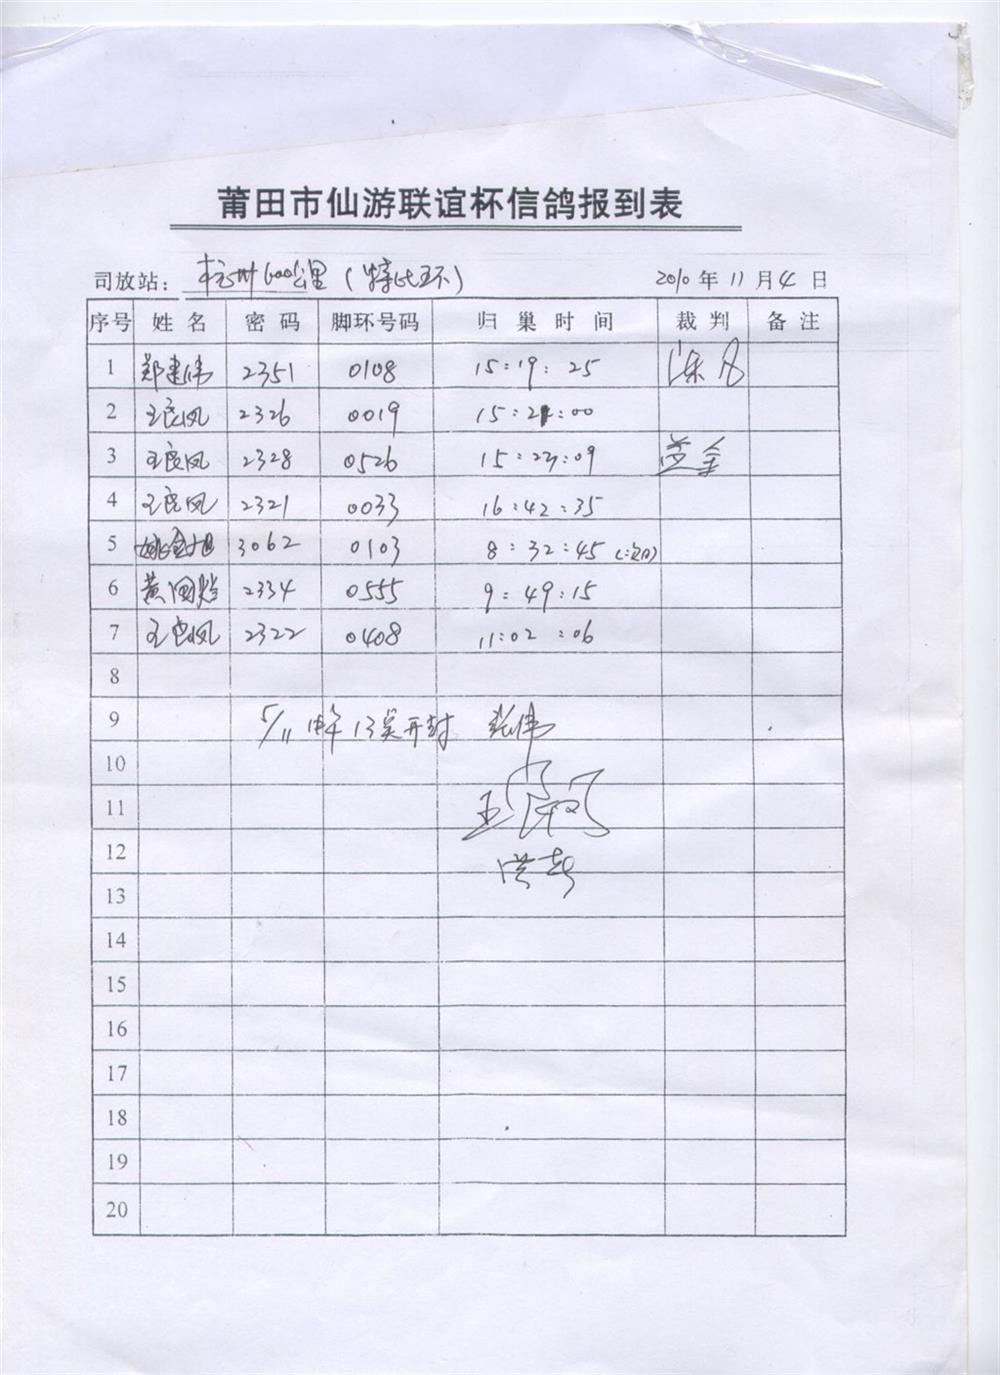 莆田市仙游联谊杯信鸽报到表
司放站： 杭州600公里（特比环） 2010 年 11 月 4 日
序号 姓 名 密 码 脚环号码 归 巢 时 间 裁 判 备 注
1 郑建伟 2351 0108 15:19:25
2 王良凤 2326 0019 15:21:00
3 王良凤 2328 0526 15:23:09
4 王良凤 2321 0033 16:42:35
5 3062 0103 8:32:45（次日）
6 黄国 2334 0555 9:49:15
7 王良凤 2322 0408 11:02:06
8
9 5/11 开封
10
11
12
13
14
15
16
17
18
19
20